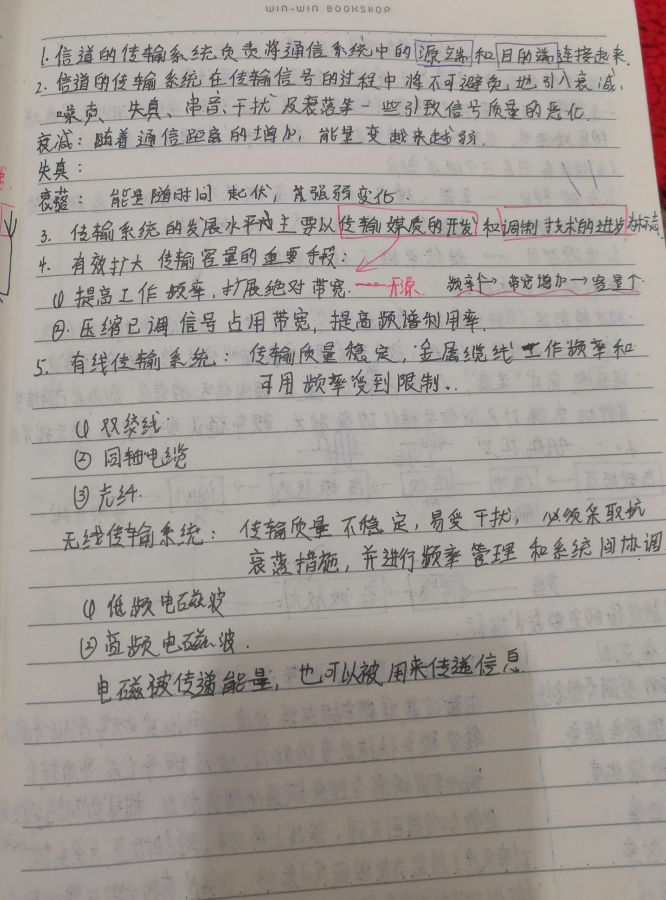 WIN-WIN BOOKSHOP
1. 信道的传输系统负责将通信系统中的源端和目的端连接起来.
2. 信道的传输系统在传输信号的过程中将不可避免地引入衰减,
噪声、失真、串音、干扰及衰落等一些引致信号质量的恶化.
衰减: 随着通信距离的增加, 能量变越来越弱.
失真:
衰落: 能量随时间起伏, 其强弱变化.
3. 传输系统的发展水平主要以传输媒质的开发和调制技术的进步为标志
4. 有效扩大传输容量的重要手段:
(1) 提高工作频率, 扩展绝对带宽. 开源 频率个→带宽增加→容量个
②. 压缩已调信号占用带宽, 提高频谱利用率.
5. 有线传输系统: 传输质量稳定, 金属缆线工作频率和
可用频率受到限制..
(1) 双绞线.
② 同轴电缆
③ 光纤.
无线传输系统: 传输质量不稳定, 易受干扰, 必须采取抗
衰落措施, 并进行频率管理和系统间协调
(1) 低频电磁波
(2) 高频电磁波.
电磁波传递能量, 也可以被用来传递信息